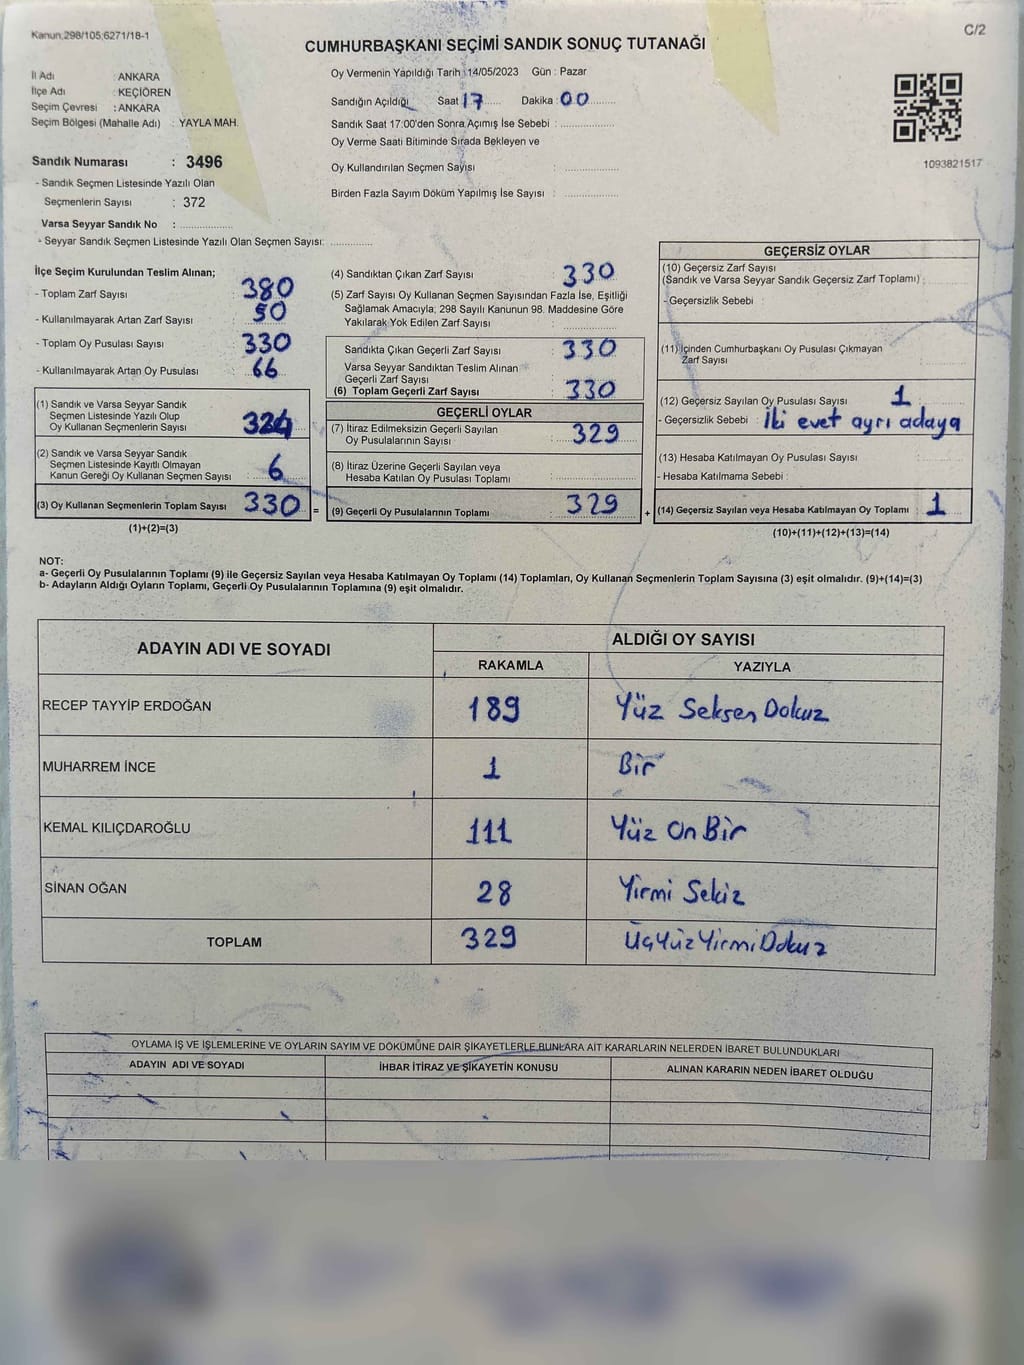 Kanun:298/105;6271/18-1
C/2
CUMHURBAŞKANI SEÇİMİ SANDIK SONUÇ TUTANAĞI
İl Adı : ANKARA
İlçe Adı : KEÇİÖREN
Seçim Çevresi : ANKARA
Seçim Bölgesi (Mahalle Adı) : YAYLA MAH.
Sandık Numarası : 3496
- Sandık Seçmen Listesinde Yazılı Olan
Seçmenlerin Sayısı : 372
Varsa Seyyar Sandık No :
- Seyyar Sandık Seçmen Listesinde Yazılı Olan Seçmen Sayısı:
Oy Vermenin Yapıldığı Tarih :14/05/2023 Gün : Pazar
Sandığın Açıldığı Saat : 17 Dakika : 00
Sandık Saat 17:00'den Sonra Açımış İse Sebebi :
Oy Verme Saati Bitiminde Sırada Bekleyen ve
Oy Kullandırılan Seçmen Sayısı :
Birden Fazla Sayım Döküm Yapılmış İse Sayısı :
1093821517
İlçe Seçim Kurulundan Teslim Alınan;
- Toplam Zarf Sayısı : 380
- Kullanılmayarak Artan Zarf Sayısı : 50
- Toplam Oy Pusulası Sayısı : 330
- Kullanılmayarak Artan Oy Pusulası : 66
(1) Sandık ve Varsa Seyyar Sandık
Seçmen Listesinde Yazılı Olup
Oy Kullanan Seçmenlerin Sayısı : 324
(2) Sandık ve Varsa Seyyar Sandık
Seçmen Listesinde Kayıtlı Olmayan
Kanun Gereği Oy Kullanan Seçmen Sayısı : 6
(3) Oy Kullanan Seçmenlerin Toplam Sayısı : 330 =
(1)+(2)=(3)
(4) Sandıktan Çıkan Zarf Sayısı : 330
(5) Zarf Sayısı Oy Kullanan Seçmen Sayısından Fazla İse, Eşitliği
Sağlamak Amacıyla; 298 Sayılı Kanunun 98. Maddesine Göre
Yakılarak Yok Edilen Zarf Sayısı :
Sandıkta Çıkan Geçerli Zarf Sayısı : 330
Varsa Seyyar Sandıktan Teslim Alınan
Geçerli Zarf Sayısı :
(6) Toplam Geçerli Zarf Sayısı : 330
GEÇERLİ OYLAR
(7) İtiraz Edilmeksizin Geçerli Sayılan
Oy Pusulalarının Sayısı : 329
(8) İtiraz Üzerine Geçerli Sayılan veya
Hesaba Katılan Oy Pusulası Toplamı :
(9) Geçerli Oy Pusulalarının Toplamı : 329 +
GEÇERSİZ OYLAR
(10) Geçersiz Zarf Sayısı
(Sandık ve Varsa Seyyar Sandık Geçersiz Zarf Toplamı) :
- Geçersizlik Sebebi :
(11) İçinden Cumhurbaşkanı Oy Pusulası Çıkmayan
Zarf Sayısı :
(12) Geçersiz Sayılan Oy Pusulası Sayısı : 1
- Geçersizlik Sebebi : İki evet ayrı adaya
(13) Hesaba Katılmayan Oy Pusulası Sayısı :
- Hesaba Katılmama Sebebi :
(14) Geçersiz Sayılan veya Hesaba Katılmayan Oy Toplamı : 1
(10)+(11)+(12)+(13)=(14)
NOT:
a- Geçerli Oy Pusulalarının Toplamı (9) ile Geçersiz Sayılan veya Hesaba Katılmayan Oy Toplamı (14) Toplamları, Oy Kullanan Seçmenlerin Toplam Sayısına (3) eşit olmalıdır. (9)+(14)=(3)
b- Adayların Aldığı Oyların Toplamı, Geçerli Oy Pusulalarının Toplamına (9) eşit olmalıdır.
ADAYIN ADI VE SOYADI ALDIĞI OY SAYISI
RAKAMLA YAZIYLA
RECEP TAYYİP ERDOĞAN 189 Yüz Seksen Dokuz
MUHARREM İNCE 1 Bir
KEMAL KILIÇDAROĞLU 111 Yüz On Bir
SİNAN OĞAN 28 Yirmi Sekiz
TOPLAM 329 ÜçYüzYirmiDokuz
OYLAMA İŞ VE İŞLEMLERİNE VE OYLARIN SAYIM VE DÖKÜMÜNE DAİR ŞİKAYETLERLE BUNLARA AİT KARARLARIN NELERDEN İBARET BULUNDUKLARI
ADAYIN ADI VE SOYADI İHBAR İTİRAZ VE ŞİKAYETİN KONUSU ALINAN KARARIN NEDEN İBARET OLDUĞU